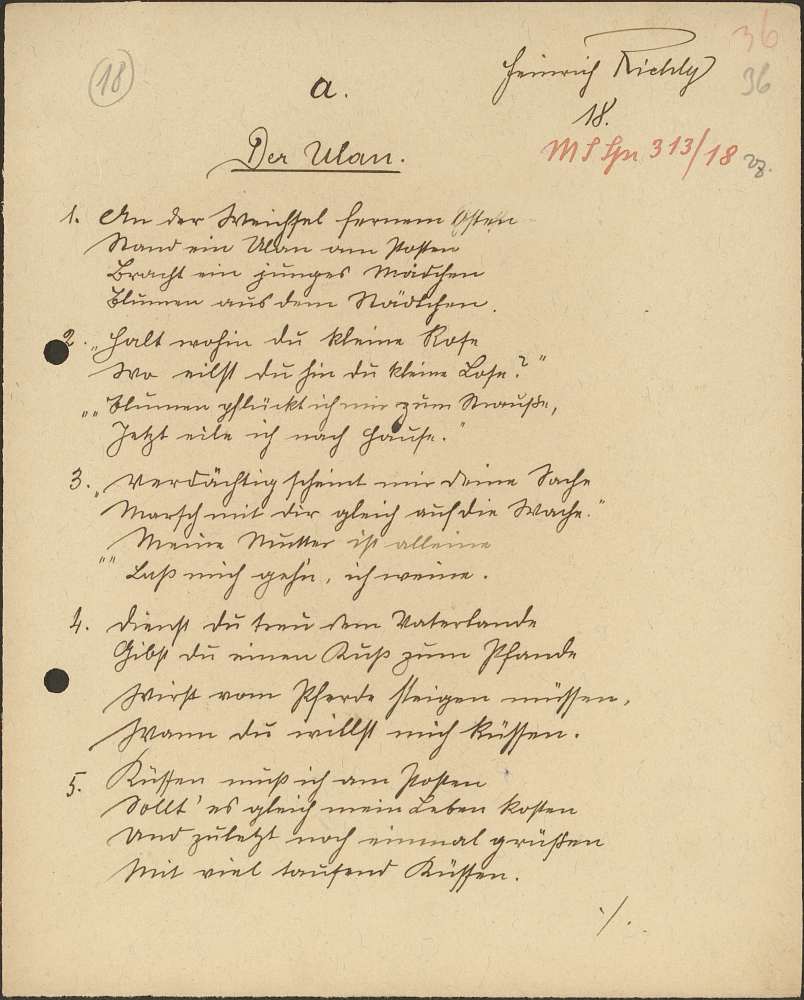 18
a.
Heinrich Richly
36
36
18.
Der Ulan.
MS Spr 313/18
1. An der Weichsel fernem Osten
Stand ein Ulan am Posten
Bracht ein junges Mädchen
Blumen aus dem Städtchen.
2. „Halt wohin du kleine Rose
Wo eilst du hin du kleine Lose?"
"" Blumen pflückt ich mir zum Strauße,
Jetzt eile ich nach Hause."
3. „Verdächtig scheint mir deine Sache
Marsch mit dir gleich auf die Wache."
Meine Mutter ist alleine
"" Laß mich gehn, ich weine.
4. Dienst du treu dem Vaterlande
Gibst du einen Kuß zum Pfande
Wirst vom Pferde steigen müssen,
Wann du willst mich küssen.
5. Küssen muß ich am Posten
Sollt' es gleich mein Leben kosten
Und zuletzt noch einmal grüßen
Mit viel tausend Küssen.
./.